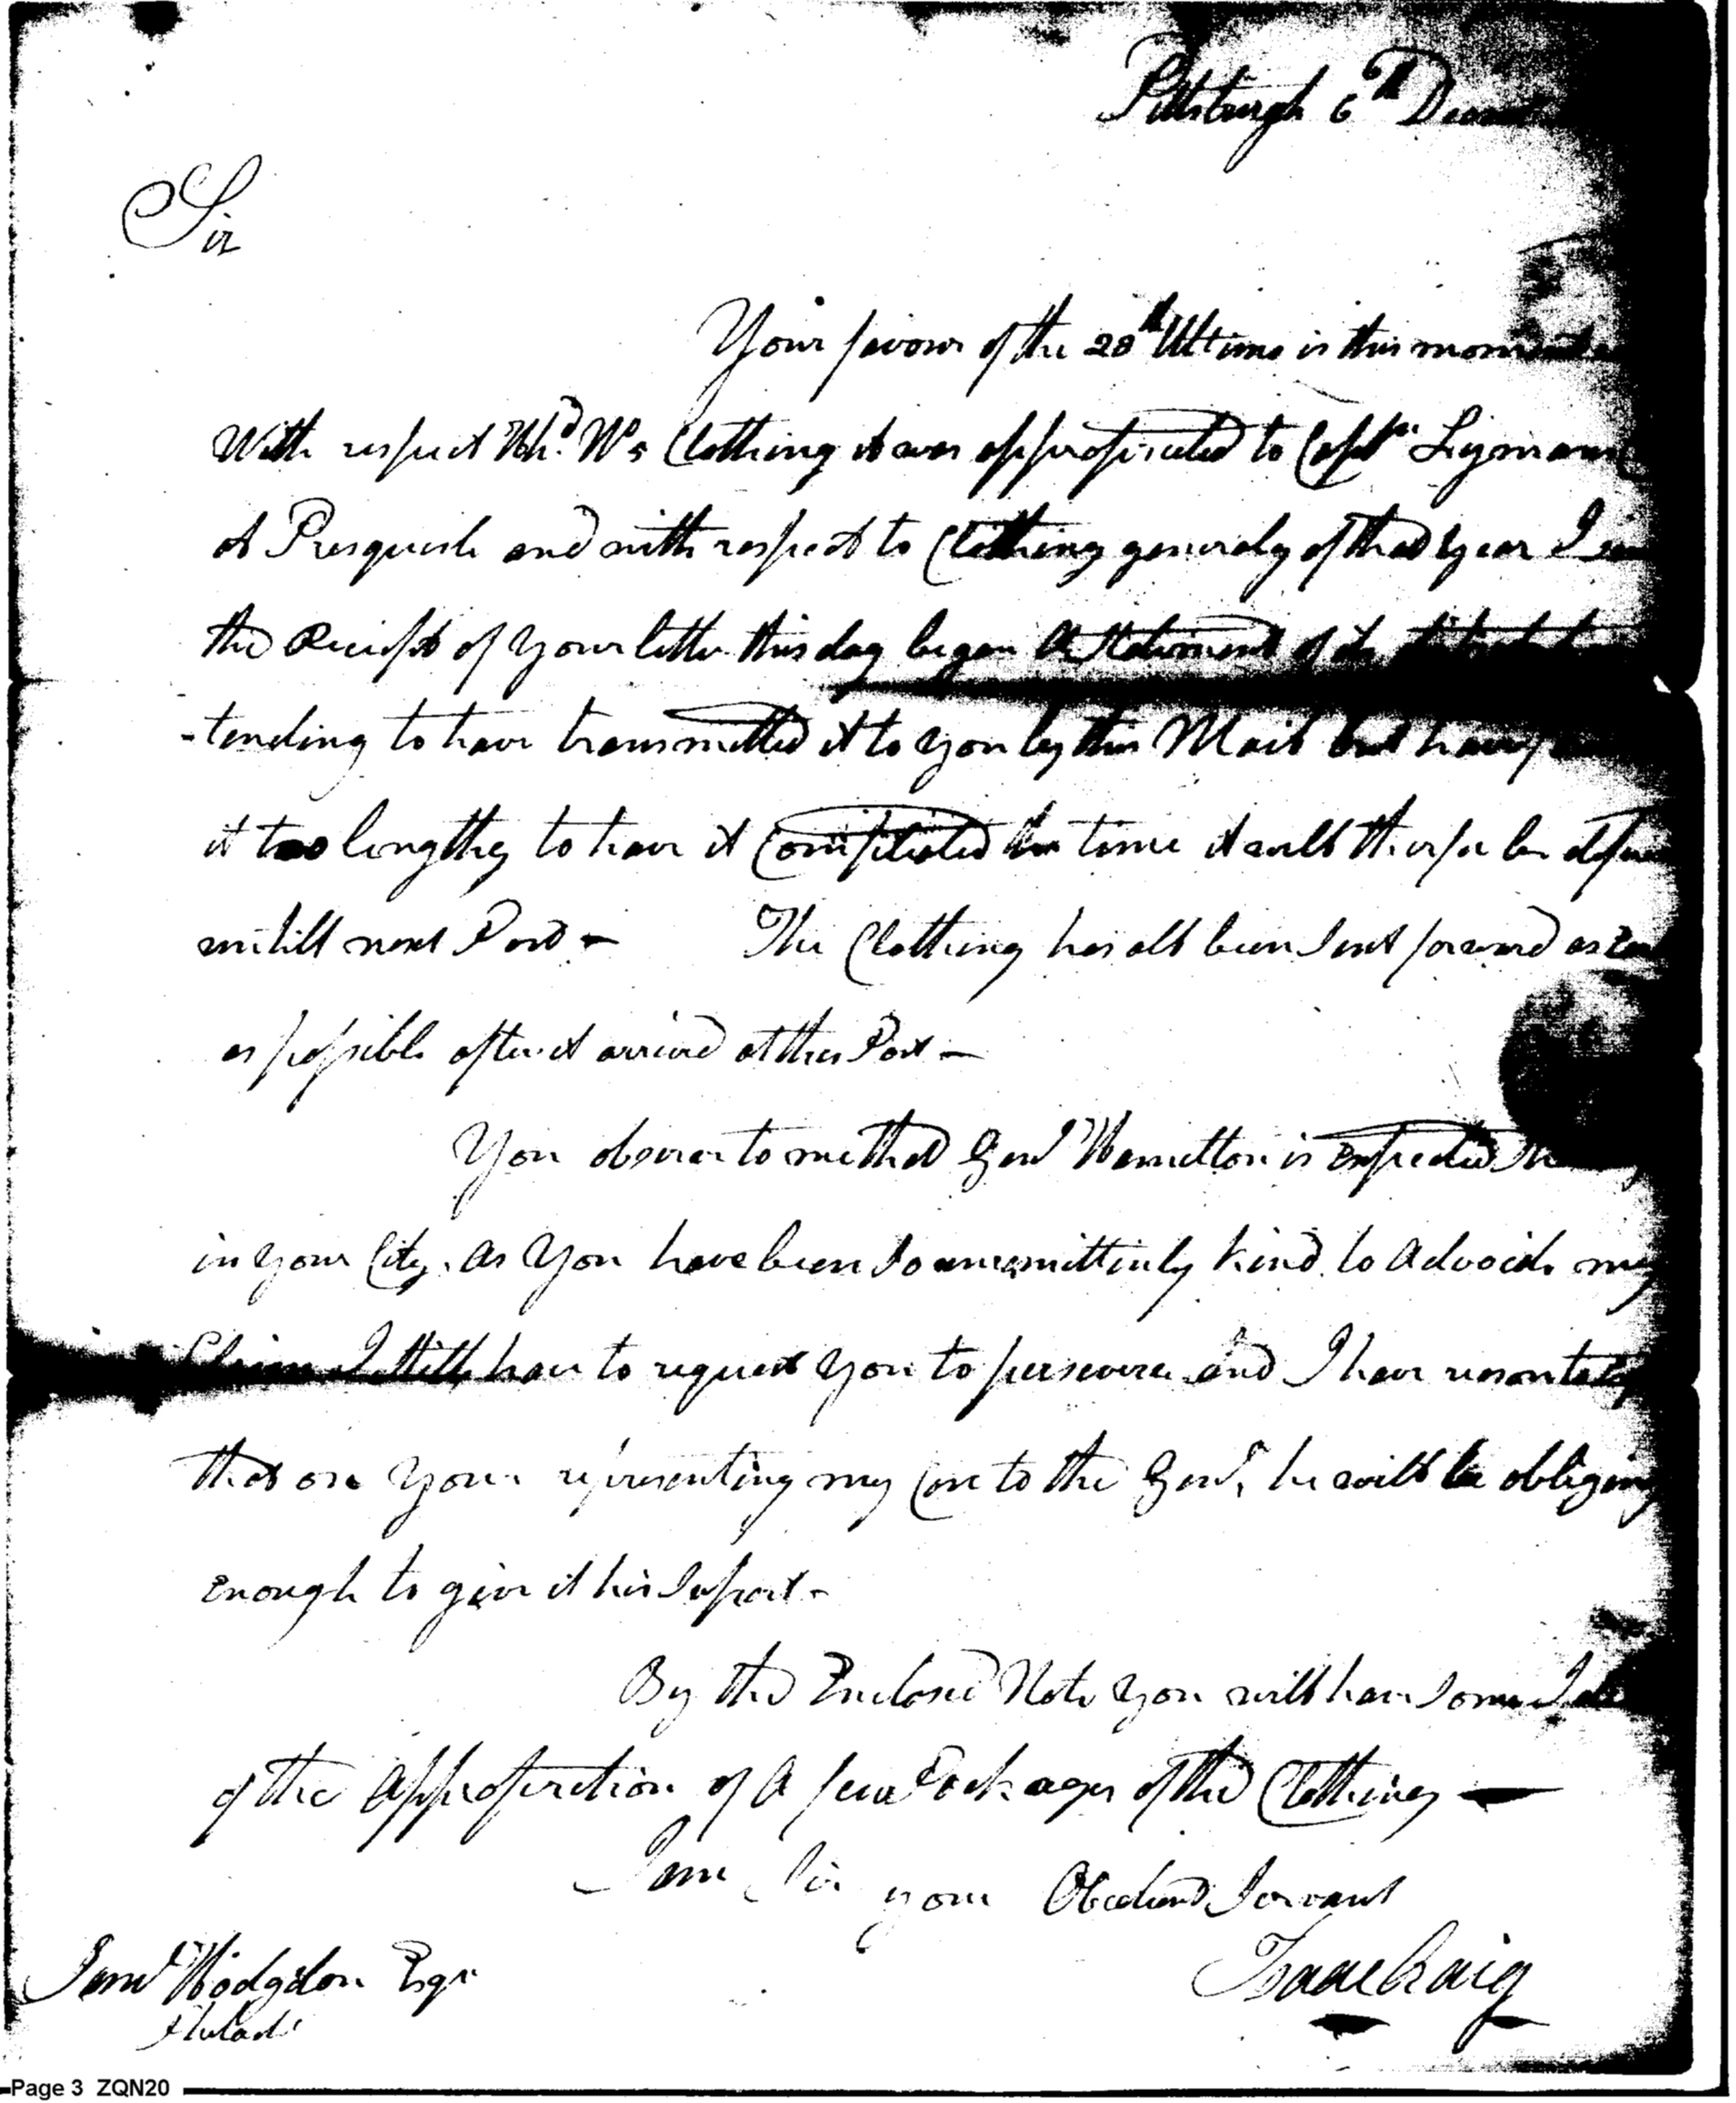 Pittsburgh 6th
Sir
Your favour of the 28th Ultimo is this moment
With respect Clothing it was appropriated to Capt. Lyman
at Presquisle and with respect to Clothing generaly of that year I
the Receipt of your letter this day began A Statement of its
-tending to have transmitted it to you by this Mail but
it too lengthy to have it Compleated in time it will therfor be
untill next Post - The Clothing has all been Sent forward as
as possible after it arrived at this Post -
You observe to me that Genl Hamilton is Expected
in your City. as you have been So unremittinly kind to Advocate my
Claim I Still have to request you to persevere and I have reson to
that on your representing my Case to the Genl, he will be obliging
Enough to give it his Suport -
By the Enclosed Note you will have Some Idea
of the Appropiration of A few Packages of the Clothing -
I am Sir your Obedient Servant
Isaac Craig
Saml Hodgdon Esqr
Philada
Page 3 ZQN20